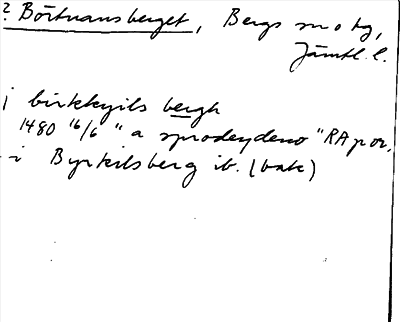 ? Börtnansberget, Bergs sn o tg,
Jämtl. l.
j birkkyils bergh
1480 16/6 "a sprodeydeno" RAp or.
i Byrkilsberg ib. (bak)